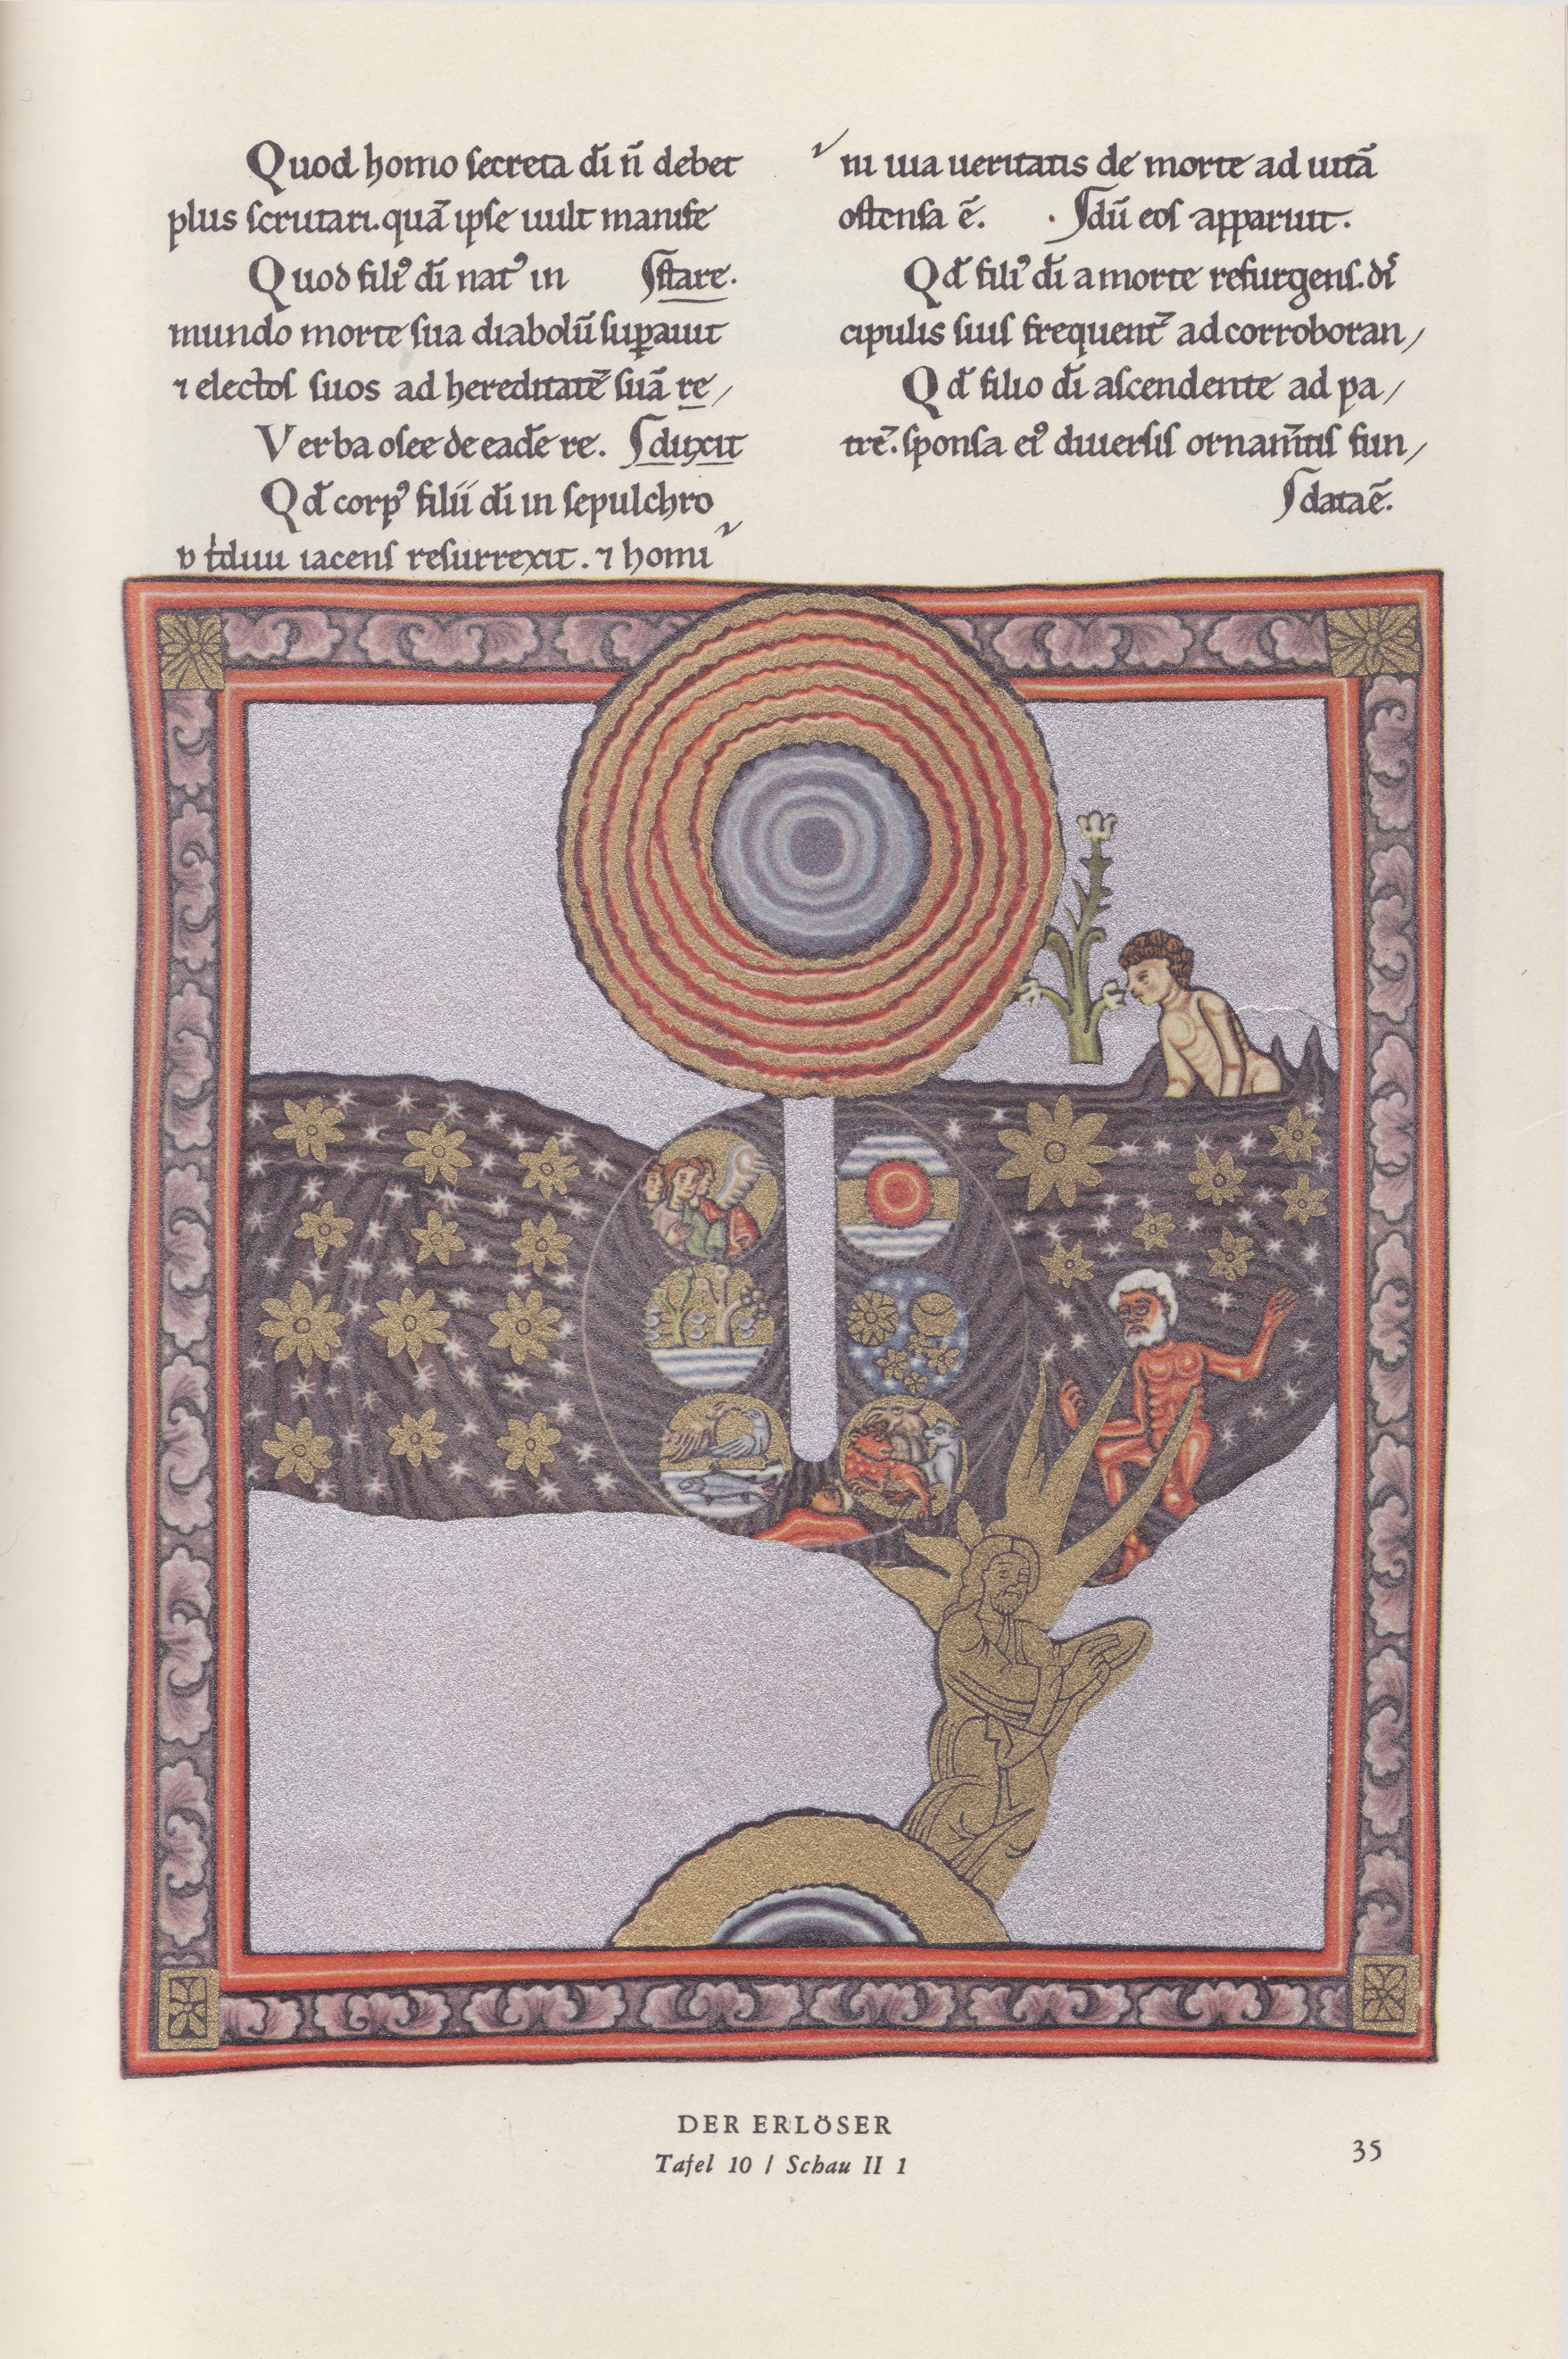 Quod homo ſecreta dī n̄ debet
plus ſcrutari. quā ipſe uult manife
Quod filiꝰ dī natꝰ in ſſtare.
mundo morte ſua diabolū ſuꝑauit
⁊ electoſ ſuos ad hereditatē ſuā re/
Verba oſee de eadē re. ſduxit
Qđ corpꝰ filii dī in ſepulchro
iacenſ reſurrexit. ⁊ homi
ni uia ueritatis de morte ad uitā
oſtenſa ē. ſdū eoſ apparuit.
Qđ filiꝰ dī a morte reſurgenſ. di
cipulis ſuiſ frequent᷒ ad corroboran/
Qđ filio dī aſcendente ad pa/
trē. ſponſa eiꝰ diuerſiſ ornam̄tiſ fun/
ſdata ē.
DER ERLÖSER
Tafel 10 / Schau II 1
35